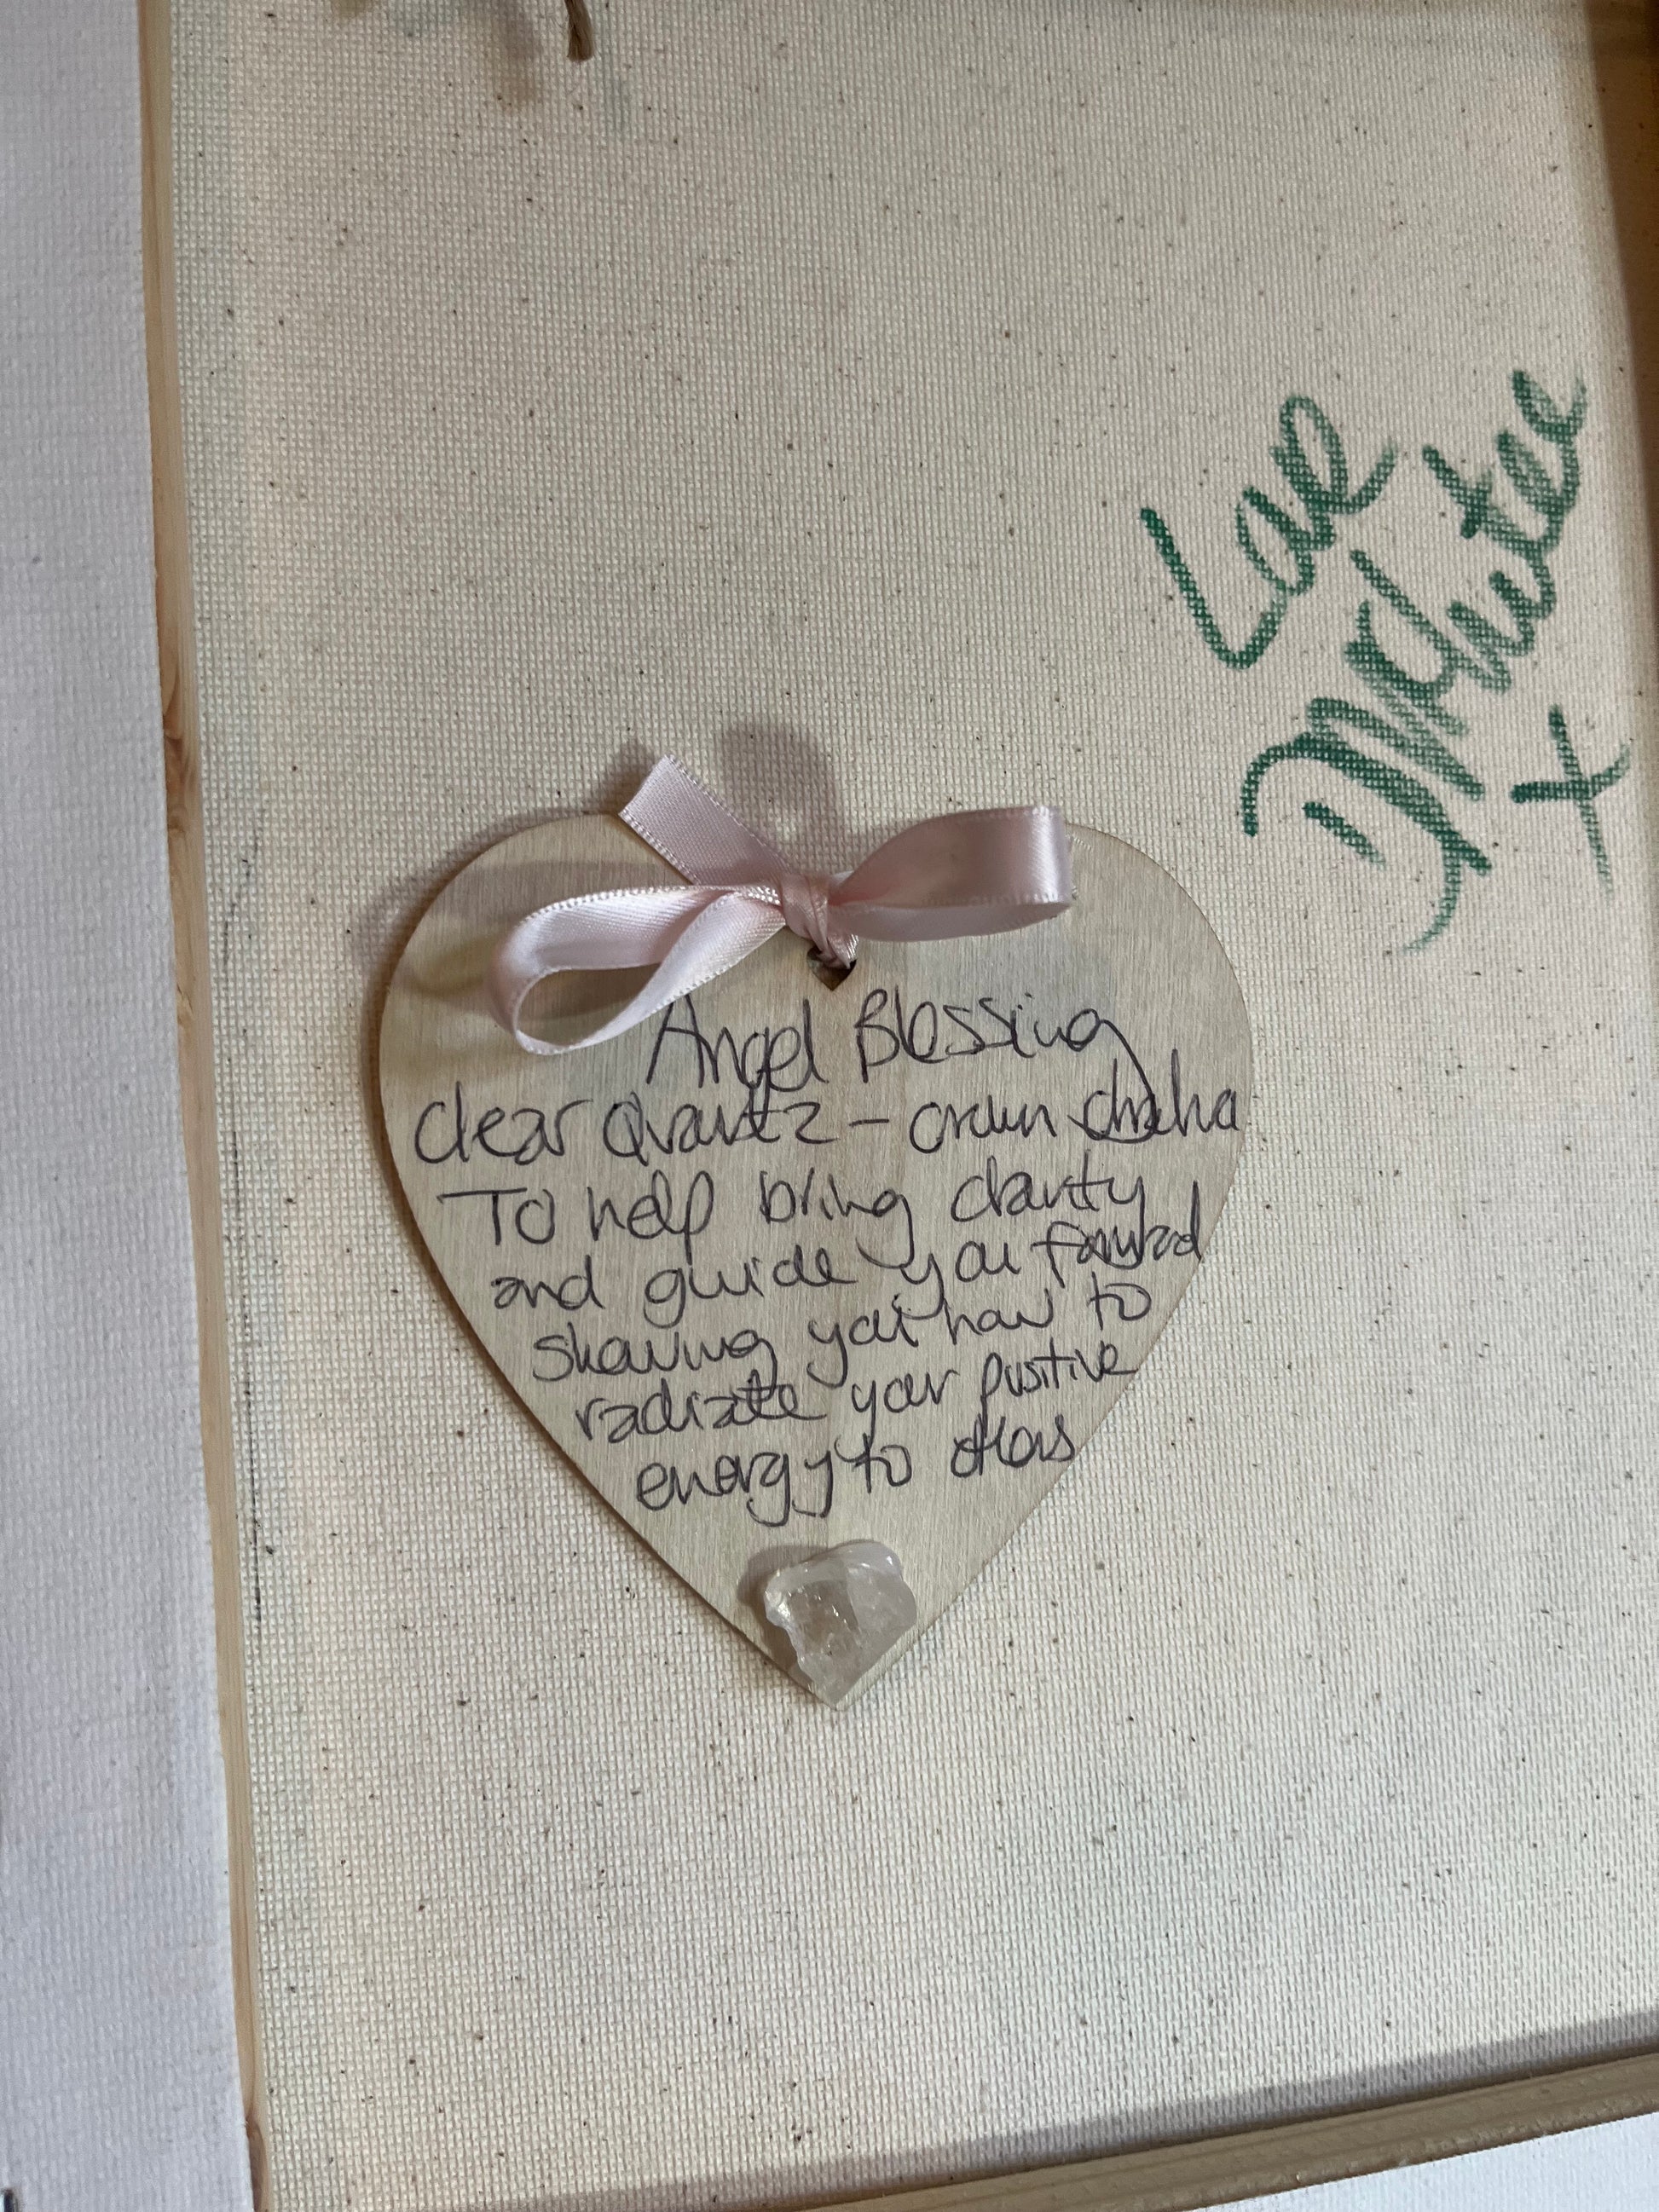 Love
x
Angel Blessing
Clear Quartz – crown chakra
To help bring clarity
and guide you forward
showing you how to
radiate your positive
energy to others